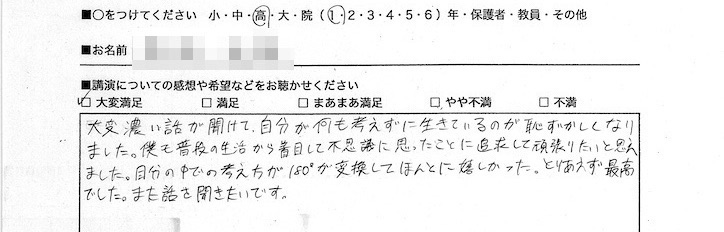 ■○をつけてください 小・中・高・大・院（1・2・3・4・5・6）年・保護者・教員・その他
■お名前
■講演についての感想や希望などをお聴かせください
□ 大変満足 □ 満足 □ まあまあ満足 □ やや不満 □ 不満
大変濃い話が聞けて、自分が何も考えずに生きているのが恥ずかしくなり
ました。僕も普段の生活から着目して不思議に思ったことに追求して頑張りたいと思え
ました。自分の中での考え方が180°が変換してほんとに嬉しかった。とりあえず最高
でした。また話を聞きたいです。